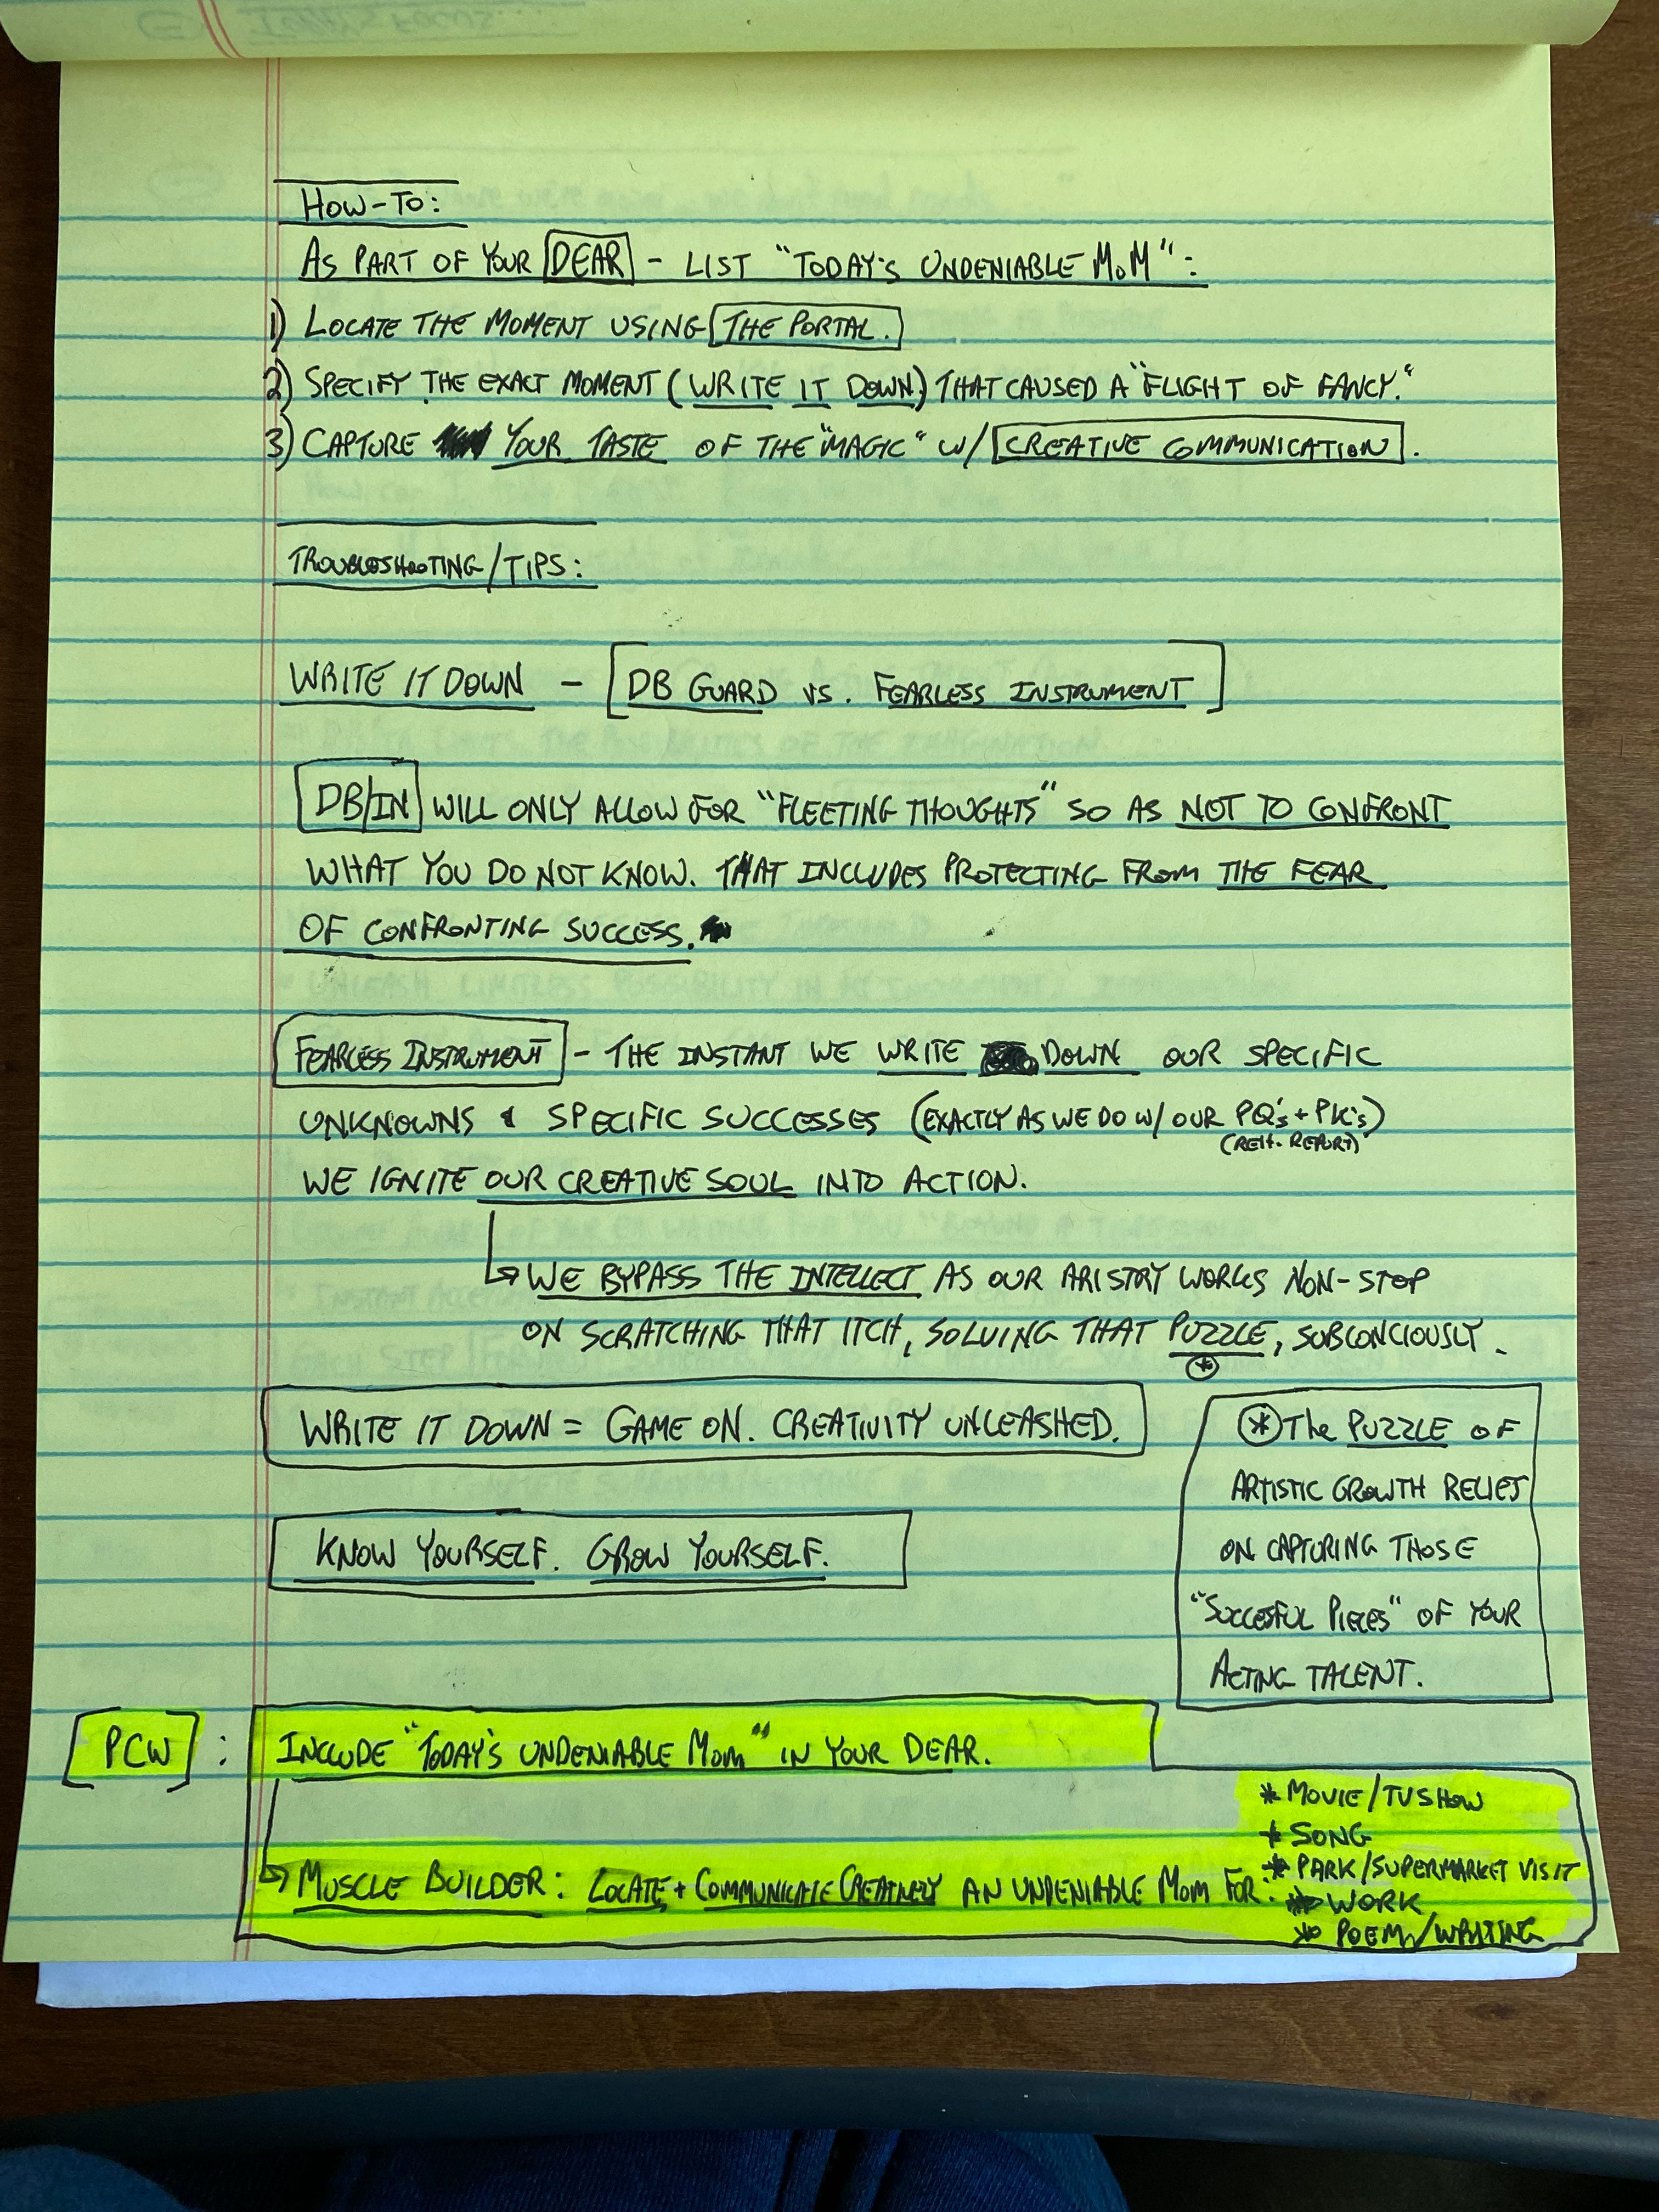 How-To:
As part of your DEAR - list "Today's Undeniable MoM":
1) Locate the moment using The Portal.
2) Specify the exact moment (write it down) that caused a "flight of fancy."
3) Capture your taste of the "magic" w/ Creative Communication.
Troubleshooting/Tips:
Write it down - [DB Guard vs. Fearless Instrument]
DB/IN will only allow for "fleeting thoughts" so as not to confront
what you do not know. That includes protecting from the fear
of confronting success.
Fearless Instrument - the instant we write down our specific
unknowns & specific successes (exactly as we do w/ our PQ's + PK's)
(Reh. Report)
we ignite our creative soul into action.
↳ We bypass the intellect as our aristry works non-stop
on scratching that itch, solving that puzzle, subconciously.
*
Write it down = Game on. Creativity unleashed.
Know yourself. Grow yourself.
* The Puzzle of
artistic growth relies
on capturing those
"succesful pieces" of your
acting talent.
[PCW] : Include "Today's Undeniable MoM" in your DEAR.
↳ Muscle Builder: Locate + Communicate Creatively an undeniable MoM for:
* Movie/TV Show
* Song
* Park/Supermarket visit
* Work
* Poem/Writing